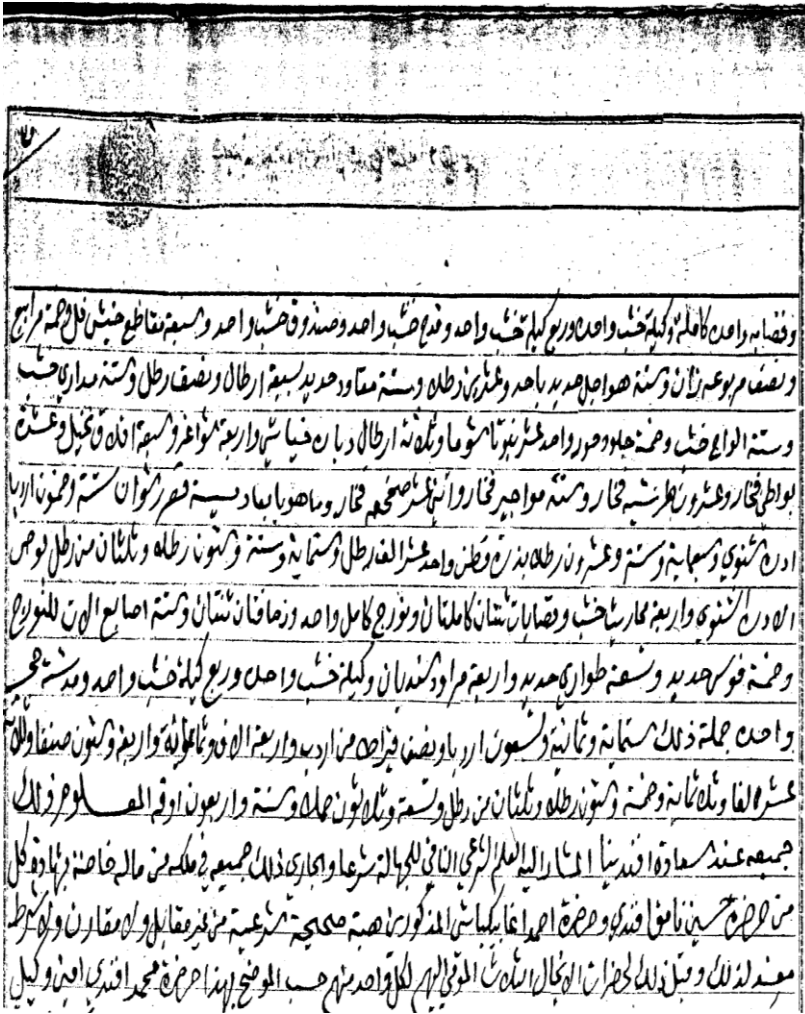 وقصابيه واحده كاملة وكيلة خشب واحده وربع كيلة خشب واحد وقدح خشب واحد وصندوق خشب واحد وسبعة مقاطع خيش فل وخمة
ونصف مربوعه وستة هواجل حديد باحد وعشرين رطلا وستة مقاود حديد بسبعة ارطال ونصف رطل وستة مداري خشب
وستة الواح خشب وخمة جلود واحد عشر وثلاثة ارطال دبارة خياشي واربعة وسبعة افلاق نخيل وعشرة
بواطي فخار وعشرون فخار وستة مواجير فخار واثني عشر فخار وما هو بابعادية ستة وخمسون اردبا
ادره شتوي وسبعماية وستة وعشرون رطلا بذرة قطن واحد عشر الف رطل وستماية وستة وستون رطلا وثلثان من رطل بوص
الادره الشتوي واربعة خشب وقصابيات ثنتان كاملتان ونورج كامل واحد وزحافتان ثنتان وستة اصابع الات للنورج
وخمسة فوس حديد وتسعة طواري حديد واربعة مراود وكيلة خشب واحده وربع كيلة خشب واحد حجر
واحده جملة ذلك ستماية وثمانية وتسعون اردبا ونصف قيراط من اردب واربعة الاف وثمانماية واربعة وستون صنفا وثلاثة
عشر الفا وثلاثماية وخمسة وستون رطلا وثلثان من رطل وتسعة وثلاثون حملا وستة واربعون اوقه المعلوم ذلك
جميعه عند سعادة افندينا المشار اليه العلم الشرعي النافي للجهالة شرعا والجاري ذلك جميعه في ملكه من ماله خاصة بشهادة كل
من حضرة حسين نامق افندي وحضرة احمد اغا المذكورين هبة صحيحة شرعية من غير مقابل ولا مقارن ولا شرط
مفسد لذلك وقبل ذلك لحضرات الانجال الثلاث المومى اليهم لكل واحد منهم حسب الموضح بهذا حضرة محمد افندي امين وكيل